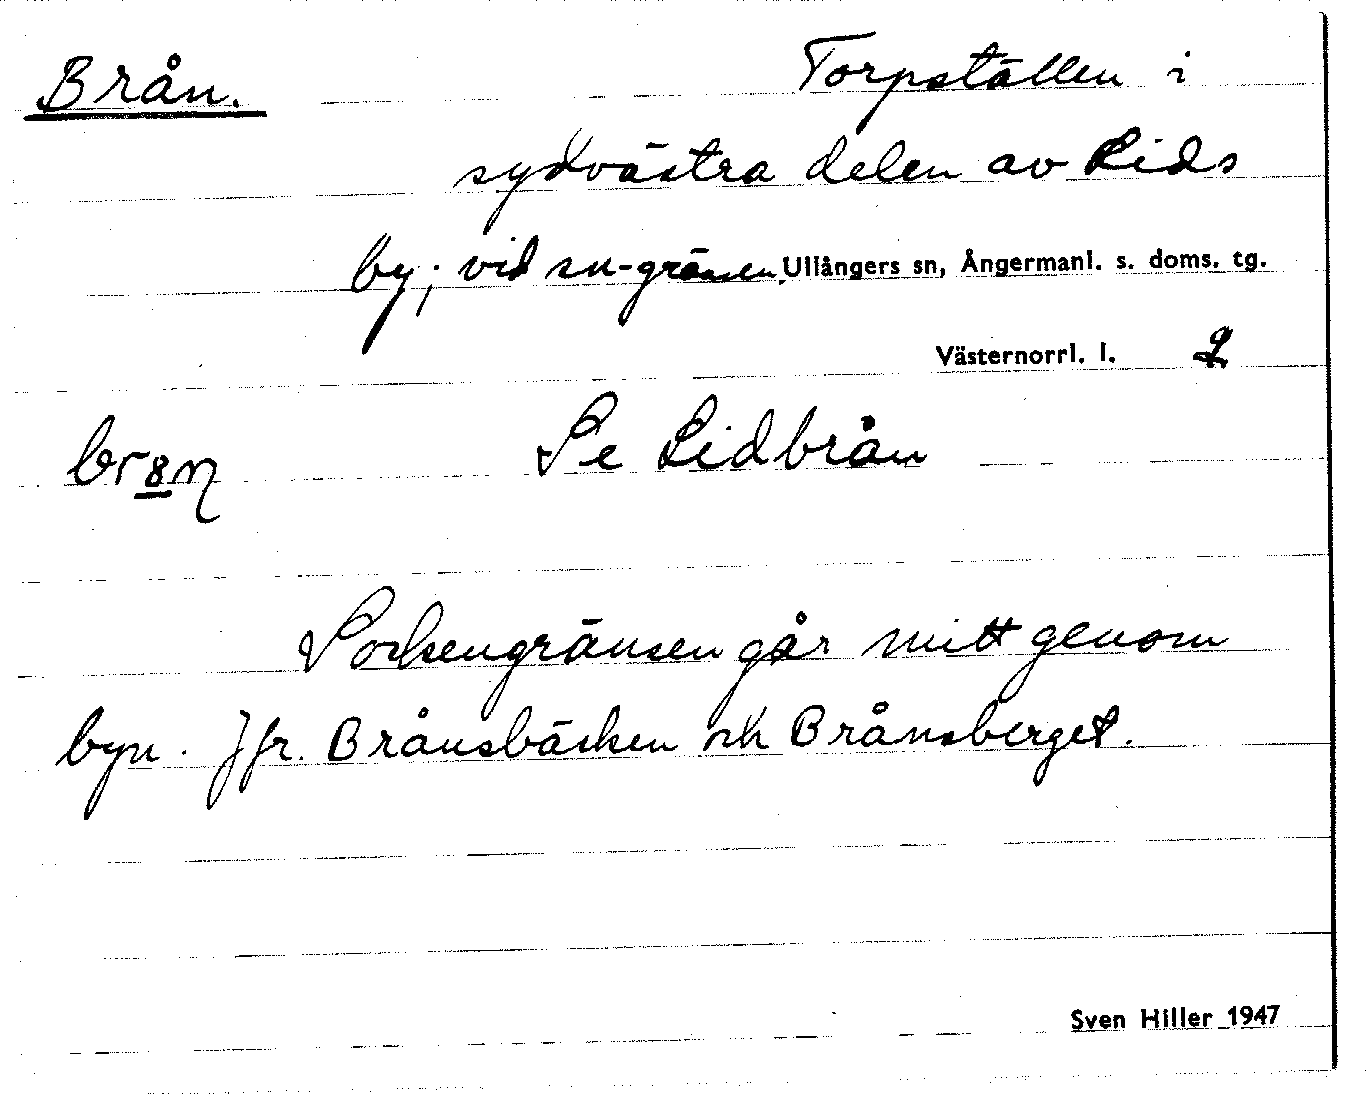 Brån. Torpställen i
sydvästra delen av Lids
by; vid sn-gränsen. Ullångers sn, Ångermanl. s. doms. tg.
Västernorrl. l.
Se Lidbrån
Sockengränsen går mitt genom
byn. Jfr. Brånsbäcken och Brånsberget.
Sven Hiller 1947